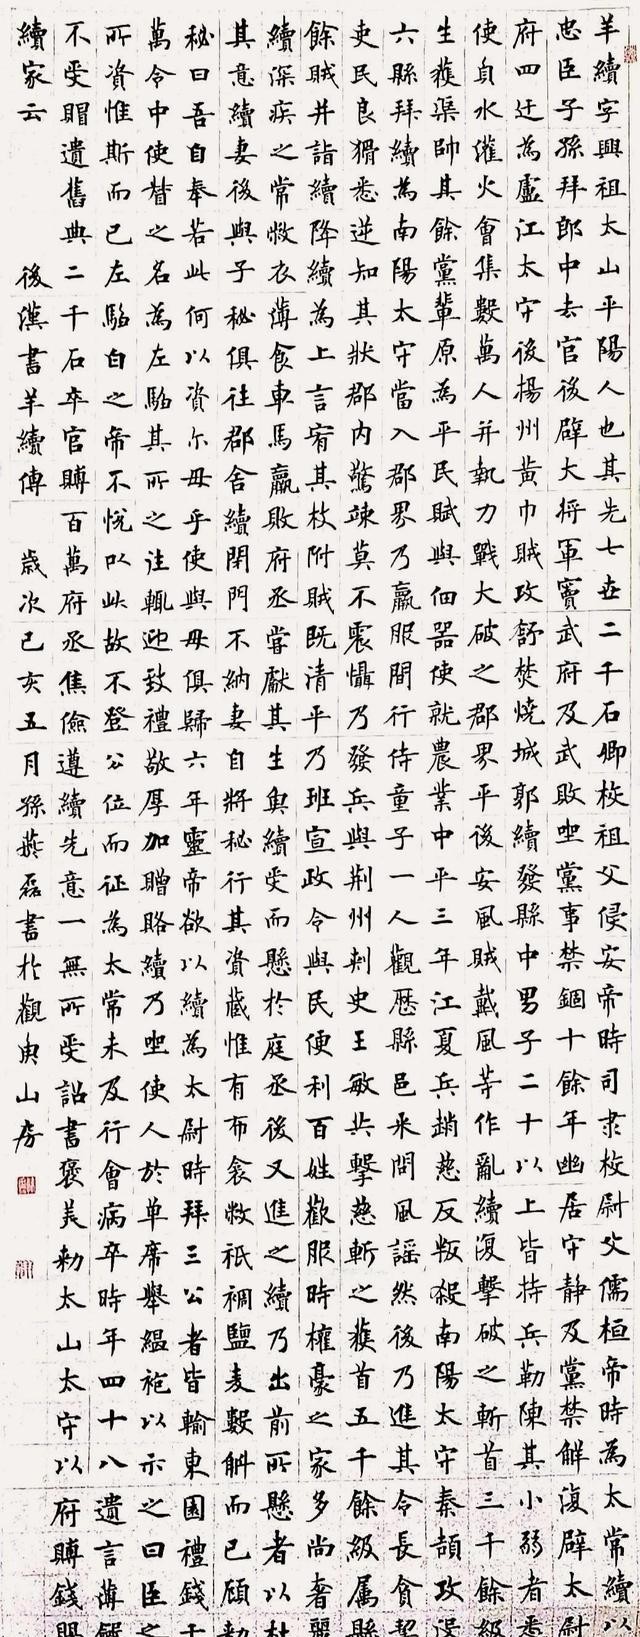 羊續字興祖太山平陽人也其先七世二千石卿校祖父侵安帝時司隶校尉父儒桓帝時為太常續以
忠臣子孫拜郎中去官後辟大將軍竇武府及武敗坐黨事禁錮十餘年幽居守静及黨禁解復辟太尉
府四迁為盧江太守後揚州黄巾賊攻舒焚燒城郭續發縣中男子二十以上皆持兵勒陳其小弱者悉
使負水灌火會集數萬人并執力戰大破之郡界平後安風賊戴風等作亂續復擊破之斬首三千餘級
生獲渠帥其餘黨輩原為平民賦與佃器使就農業中平三年江夏兵趙慈反叛殺南陽太守秦頡攻没
六縣拜續為南陽太守當入郡界乃羸服間行侍童子一人觀歷縣邑采問風謠然後乃進其令長貪絜
吏民良猾悉逆知其狀郡内驚竦莫不震懾乃發兵與荆州刺史王敏共擊慈斬之獲首五千餘級属縣
餘賊并詣續降續為上言宥其枝附賊既清平乃班宣政令與民便利百姓歡服時權豪之家多尚奢麗
續深疾之常敝衣薄食車馬羸敗府丞嘗獻其生魚續受而懸於庭丞後又進之續乃出前所懸者以杜
其意續妻後與子秘俱往郡舍續閉門不納妻自將秘行其資藏惟有布衾敝袛裯鹽麦數斛而已顧勑
秘曰吾自奉若此何以資尔母乎使與母俱歸六年靈帝欲以續為太尉時拜三公者皆輸東園禮錢千
萬令中使督之名為左騶其所之往輒迎致禮敬厚加贈賂續乃坐使人於单席舉緼袍以示之曰臣之
所資惟斯而已左騶白之帝不悦以此故不登公位而征為太常未及行會病卒時年四十八遺言薄斂
不受賵遺舊典二千石卒官賻百萬府丞焦儉遵續先意一無所受詔書褒美勑太山太守以府賻錢賜
續家云 後漢書羊續傳 歲次己亥五月孫燕磊書於觀山房